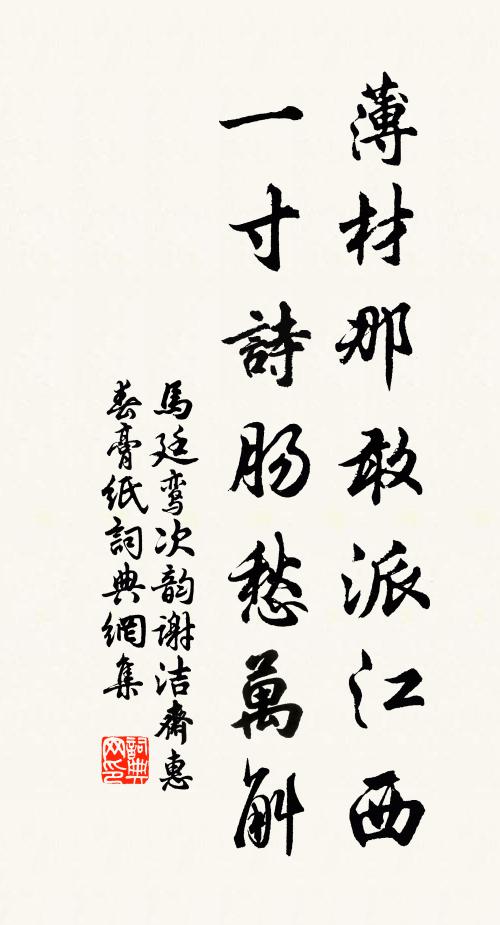 薄材那敢派江西
一寸詩肠愁萬斛
馬廷鸾次韵谢洁齋惠
春膏纸詞典網集
詞典
网印